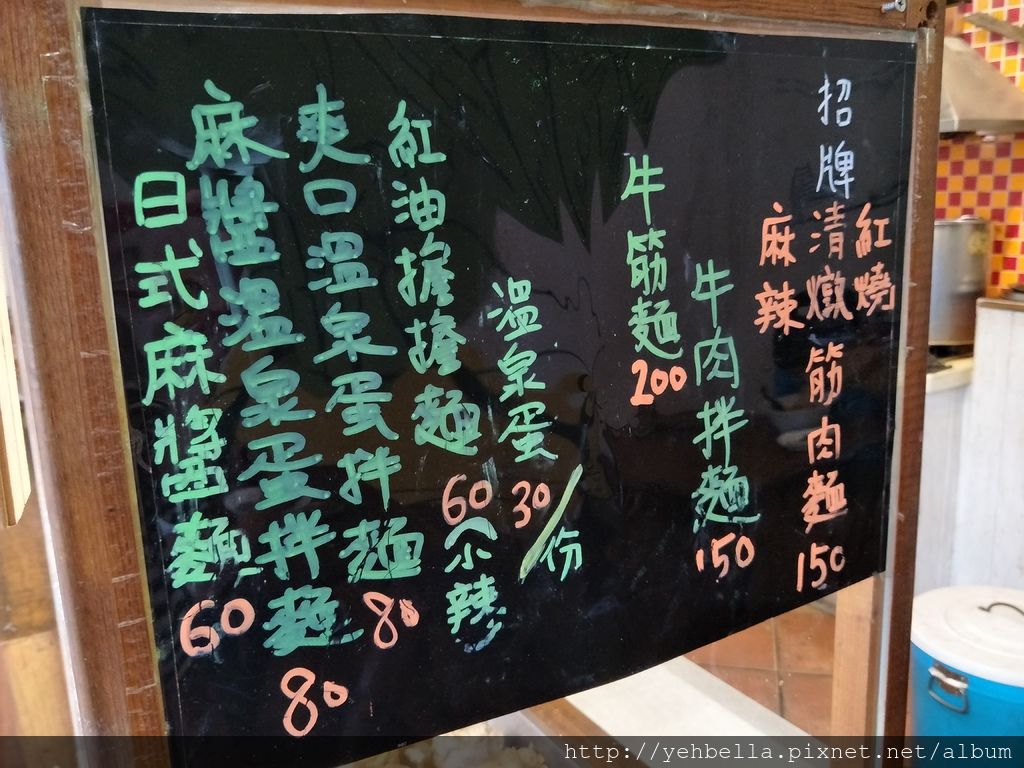 招牌
紅燒
清燉
麻辣
筋肉麵 150
牛肉拌麵 150
牛筋麵 200
溫泉蛋 30/份
紅油擔擔麵 60(小辣)
爽口溫泉蛋拌麵 80
麻醬溫泉蛋拌麵 80
日式麻醬麵 60
http://yehbella.pixnet.net/album